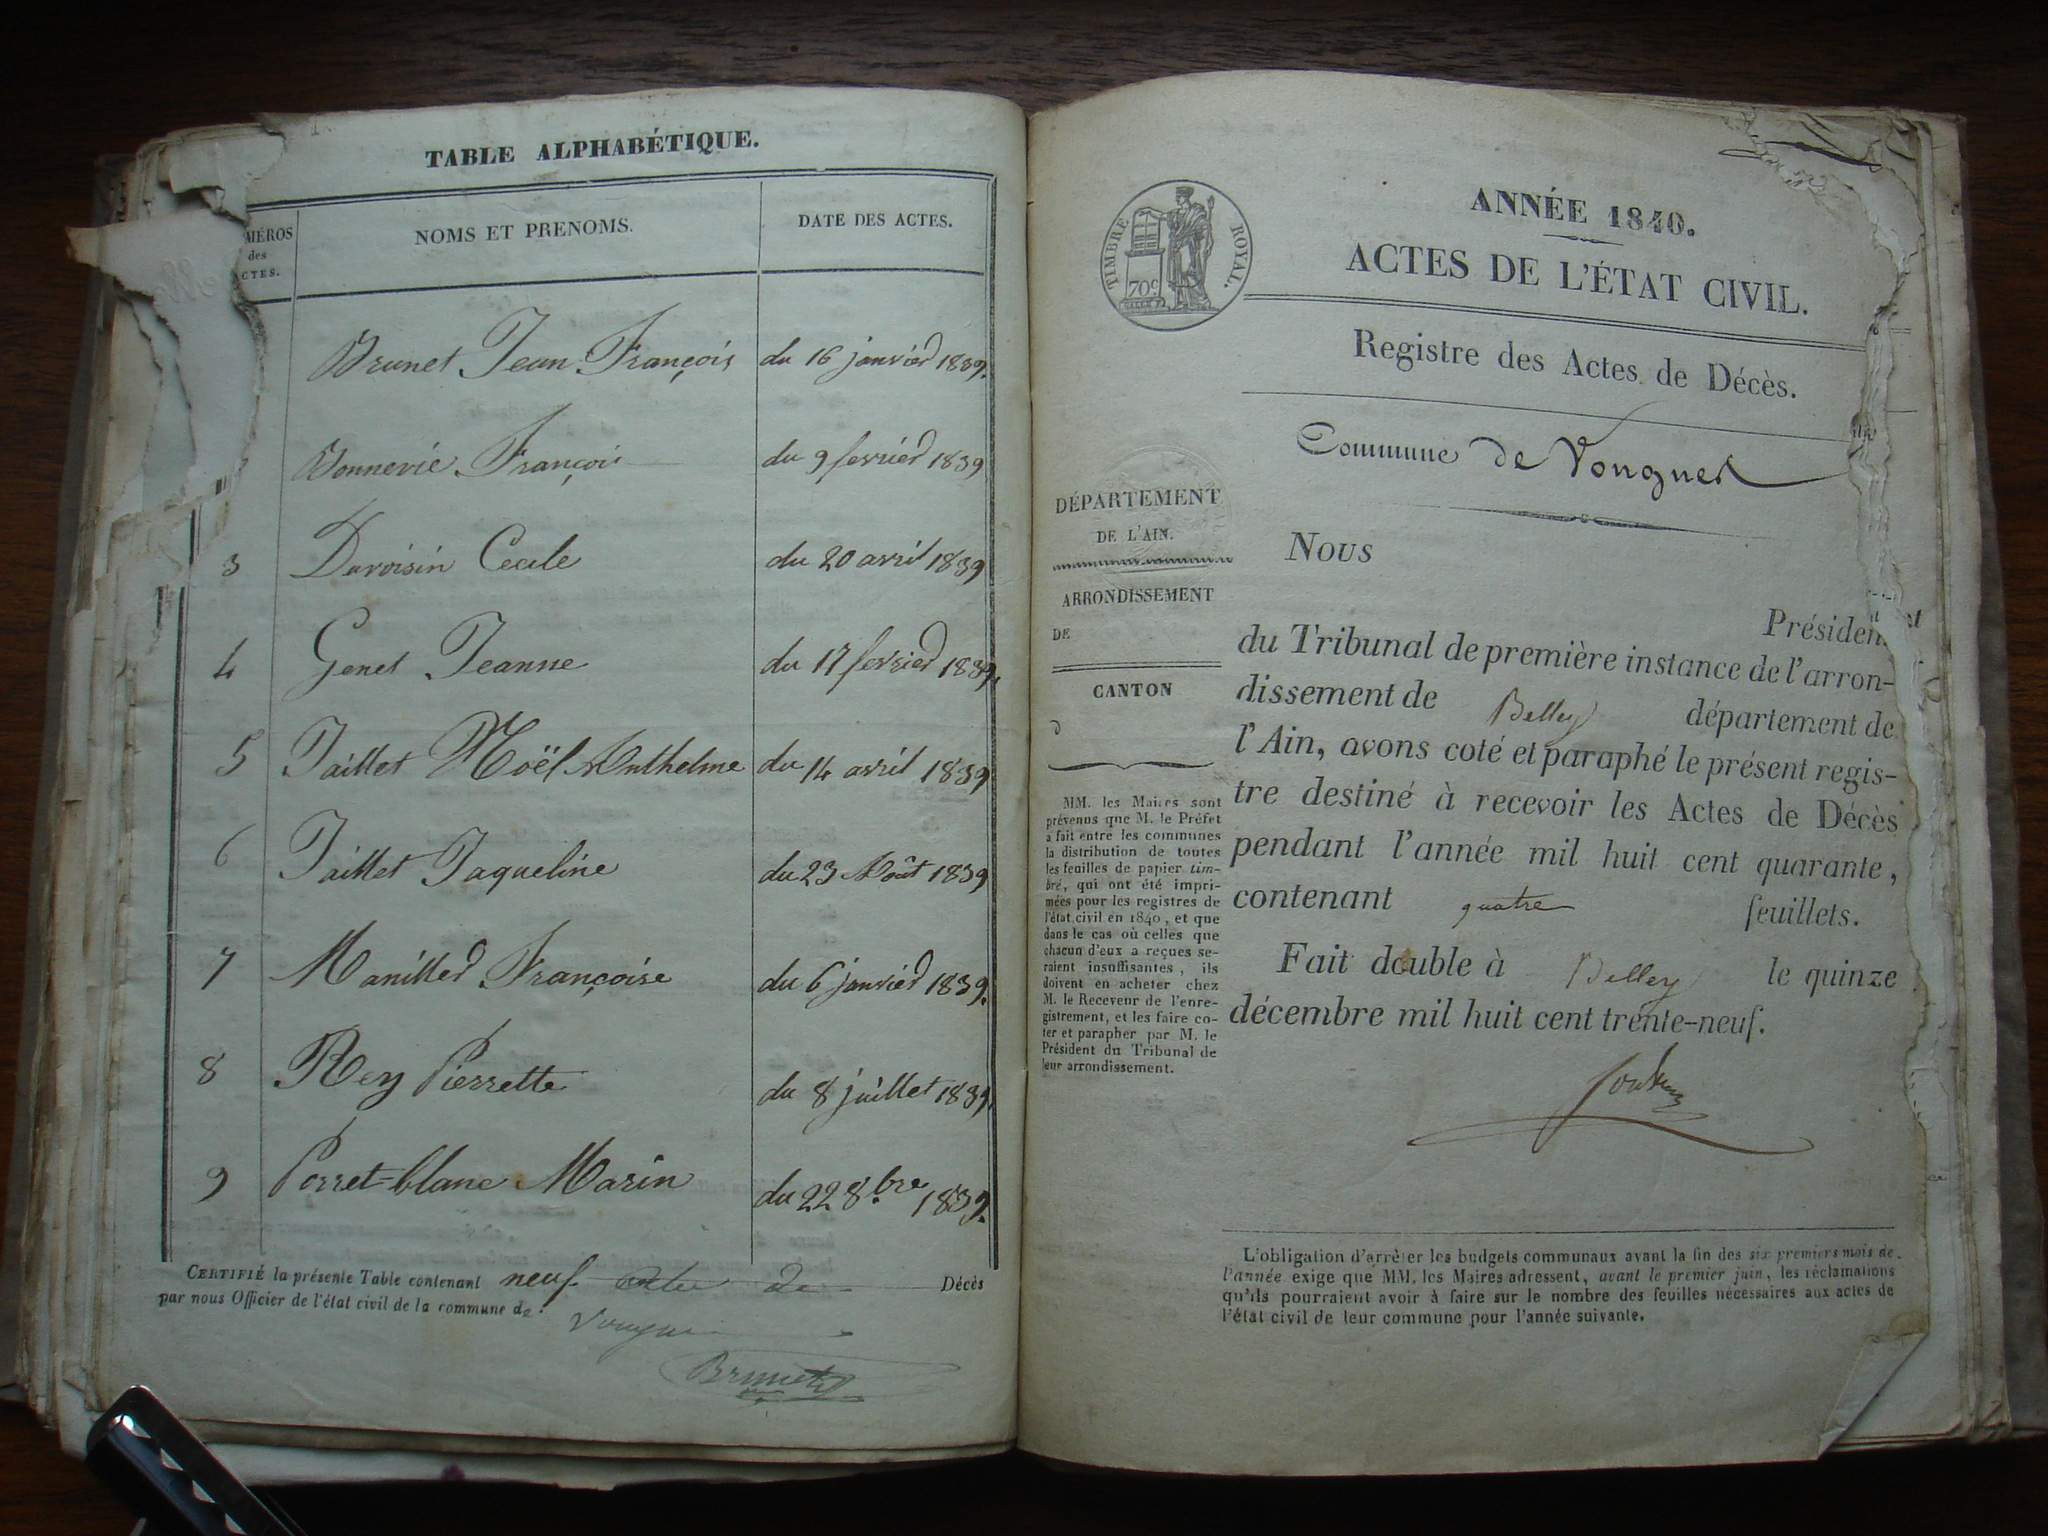 TABLE ALPHABÉTIQUE.
MÉROS
des
CTES.
NOMS ET PRENOMS.
DATE DES ACTES.
Brunet Jean François du 16 janvier 1839.
Bonnerie François du 9 fevrier 1839
3 Davoisin Cecile du 20 avril 1839
4 Genet Jeanne du 17 fevrier 1839.
5 Taillet Noël Anthelme du 14 avril 1839
6 Taillet Jaqueline du 23 Août 1839
7 Manillier Françoise du 6 janvier 1839.
8 Rey Pierrette du 8 juillet 1839.
9 Perret-blanc Marin du 22 8.bre 1839.
CERTIFIÉ la présente Table contenant neuf actes de Décès
par nous Officier de l'état civil de la commune de
Brunet
TIMBRE ROYAL.
70c
ANNÉE 1840.
ACTES DE L'ÉTAT CIVIL.
Registre des Actes de Décès.
Commune de Vongnes
DÉPARTEMENT
DE L'AIN.
ARRONDISSEMENT
DE
CANTON
d
MM. les Maires sont
prévenus que M. le Préfet
a fait entre les communes
la distribution de toutes
les feuilles de papier tim-
bré, qui ont été impri-
mées pour les registres de
l'état civil en 1840, et que
dans le cas où celles que
chacun d'eux a reçues se-
raient insuffisantes, ils
doivent en acheter chez
M. le Receveur de l'enre-
gistrement, et les faire co-
ter et parapher par M. le
Président du Tribunal de
leur arrondissement.
Nous
Présiden
du Tribunal de première instance de l'arron-
dissement de Belley département de
l'Ain, avons coté et paraphé le présent regis-
tre destiné à recevoir les Actes de Décès
pendant l'année mil huit cent quarante,
contenant quatre feuillets.
Fait double à Belley le quinze
décembre mil huit cent trente-neuf.
L'obligation d'arrêter les budgets communaux avant la fin des six premiers mois de
l'année exige que MM. les Maires adressent, avant le premier juin, les réclamations
qu'ils pourraient avoir à faire sur le nombre des feuilles nécessaires aux actes de
l'état civil de leur commune pour l'année suivante.